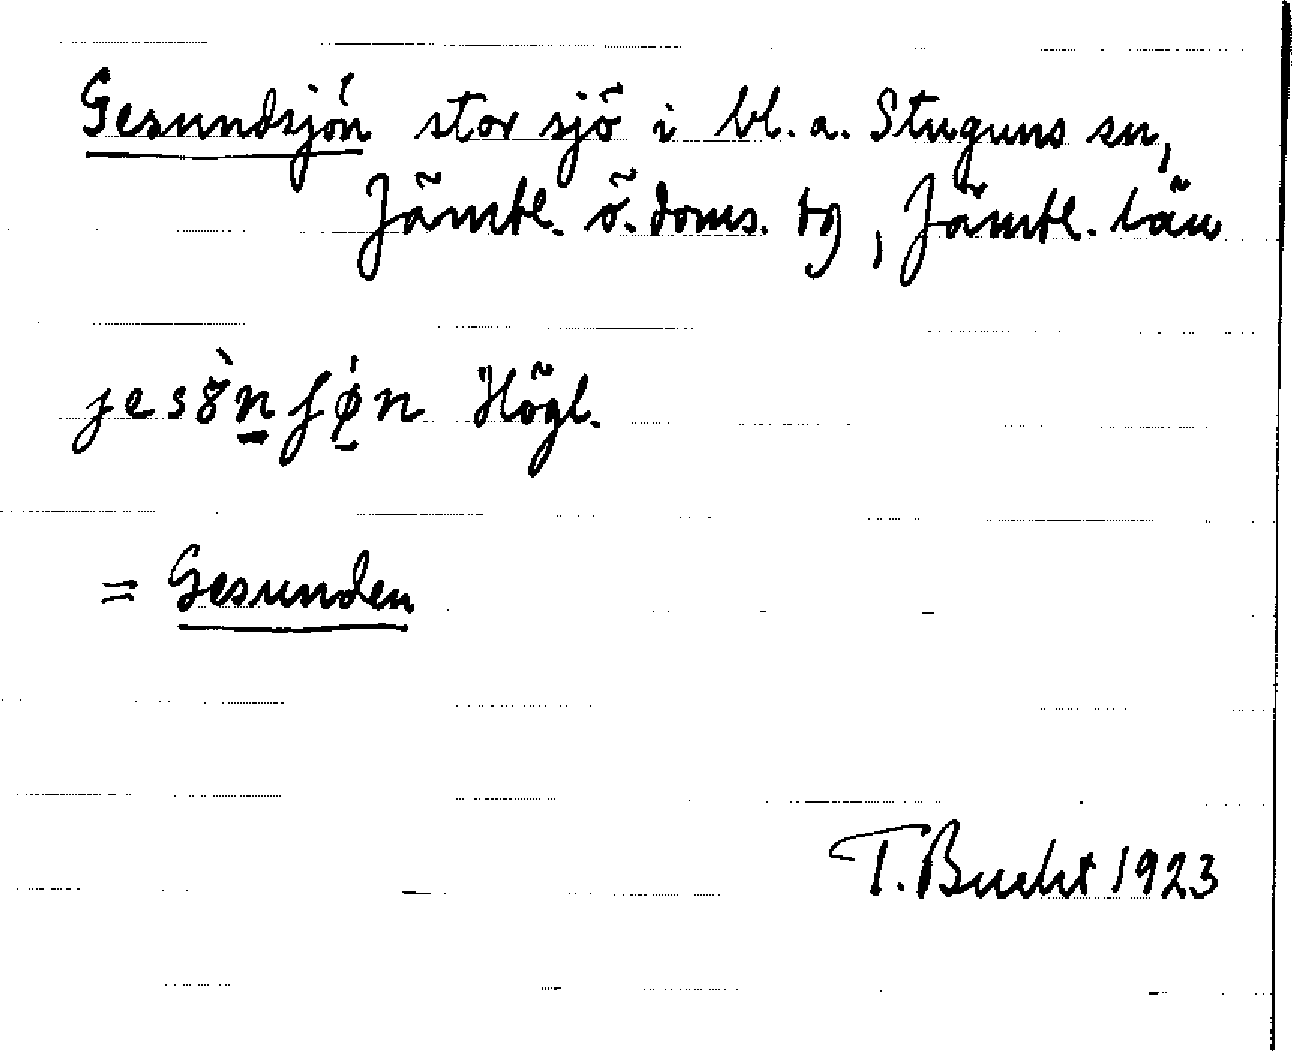 Gesundsjön stor sjö i bl. a. Stuguns sn,
Jämtl. ö. doms. tg, Jämtl. län
Högl.
= Gesunden
T. Bucht 1923